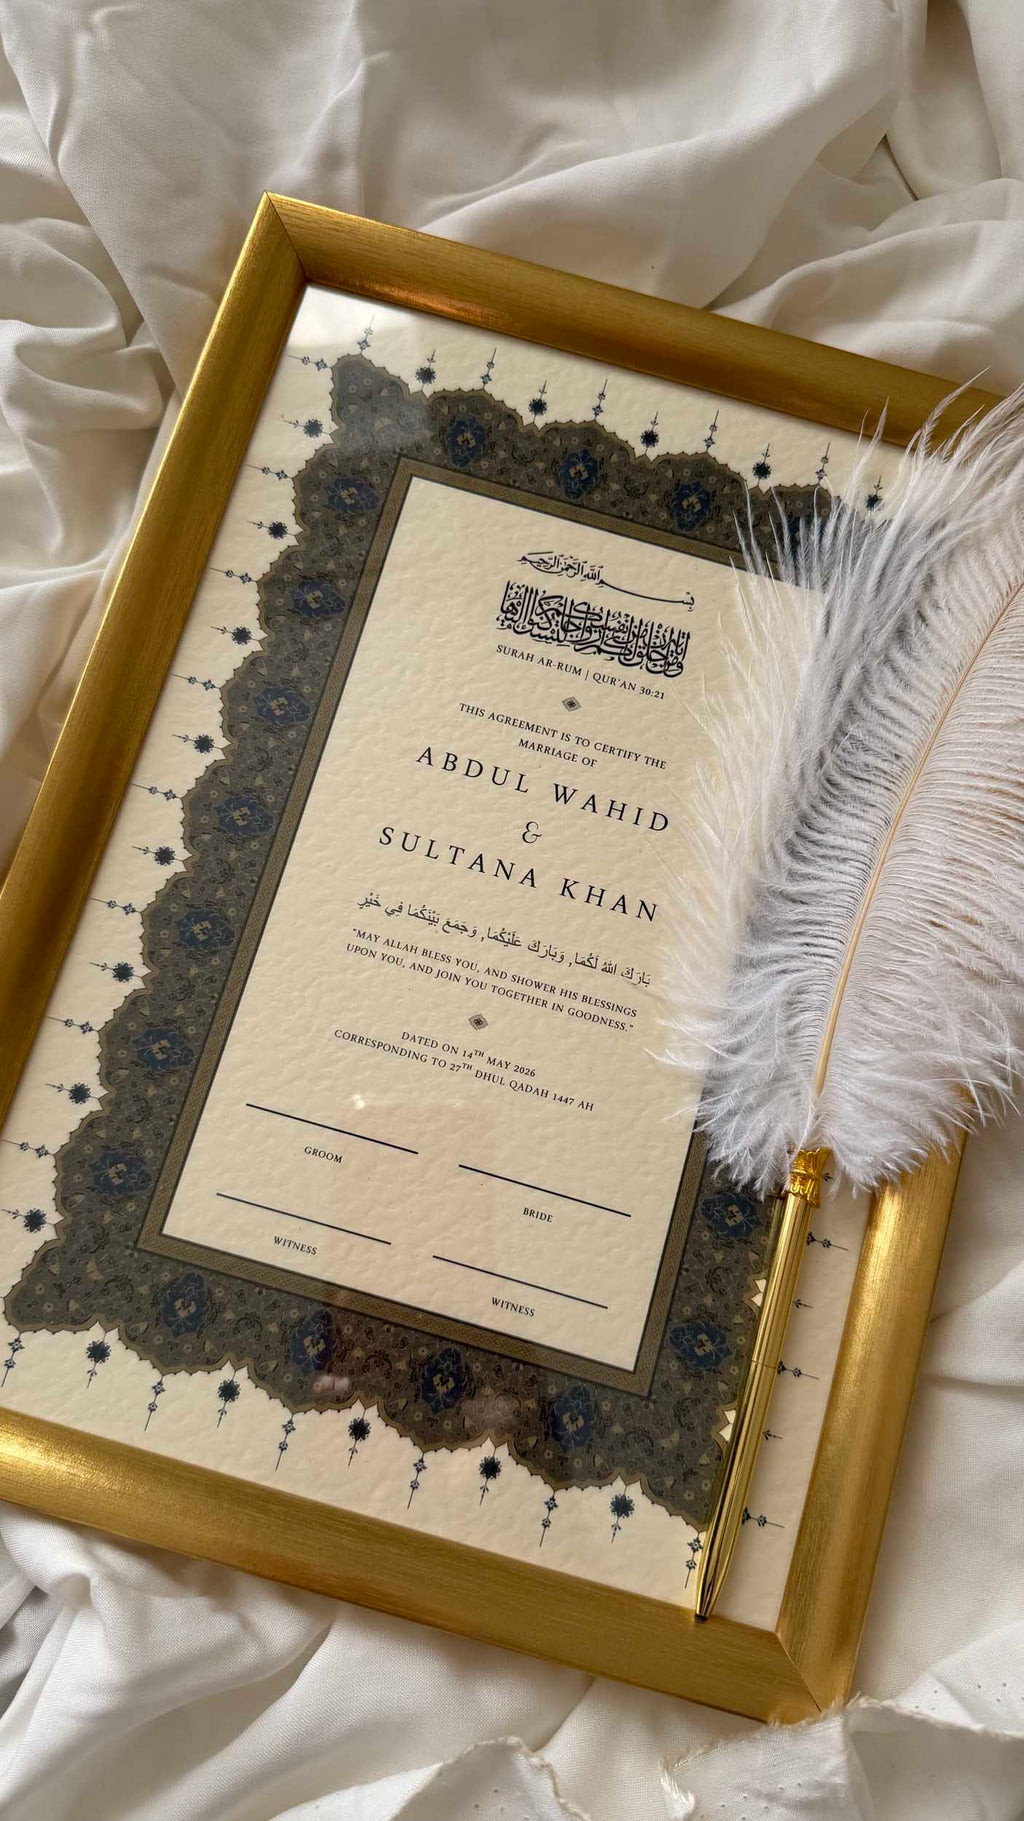 بسم الله الرحمن الرحيم
ومن آياته أن خلق لكم من أنفسكم أزواجا لتسكنوا إليها
SURAH AR-RUM | QUR'AN 30:21
THIS AGREEMENT IS TO CERTIFY THE
MARRIAGE OF
ABDUL WAHID
&
SULTANA KHAN
بَارَكَ اللهُ لَكُمَا, وَبَارَكَ عَلَيْكُمَا, وَجَمَعَ بَيْنَكُمَا فِي خَيْرٍ
"MAY ALLAH BLESS YOU, AND SHOWER HIS BLESSINGS
UPON YOU, AND JOIN YOU TOGETHER IN GOODNESS."
DATED ON 14TH MAY 2026
CORRESPONDING TO 27TH DHUL QADAH 1447 AH
GROOM
BRIDE
WITNESS
WITNESS